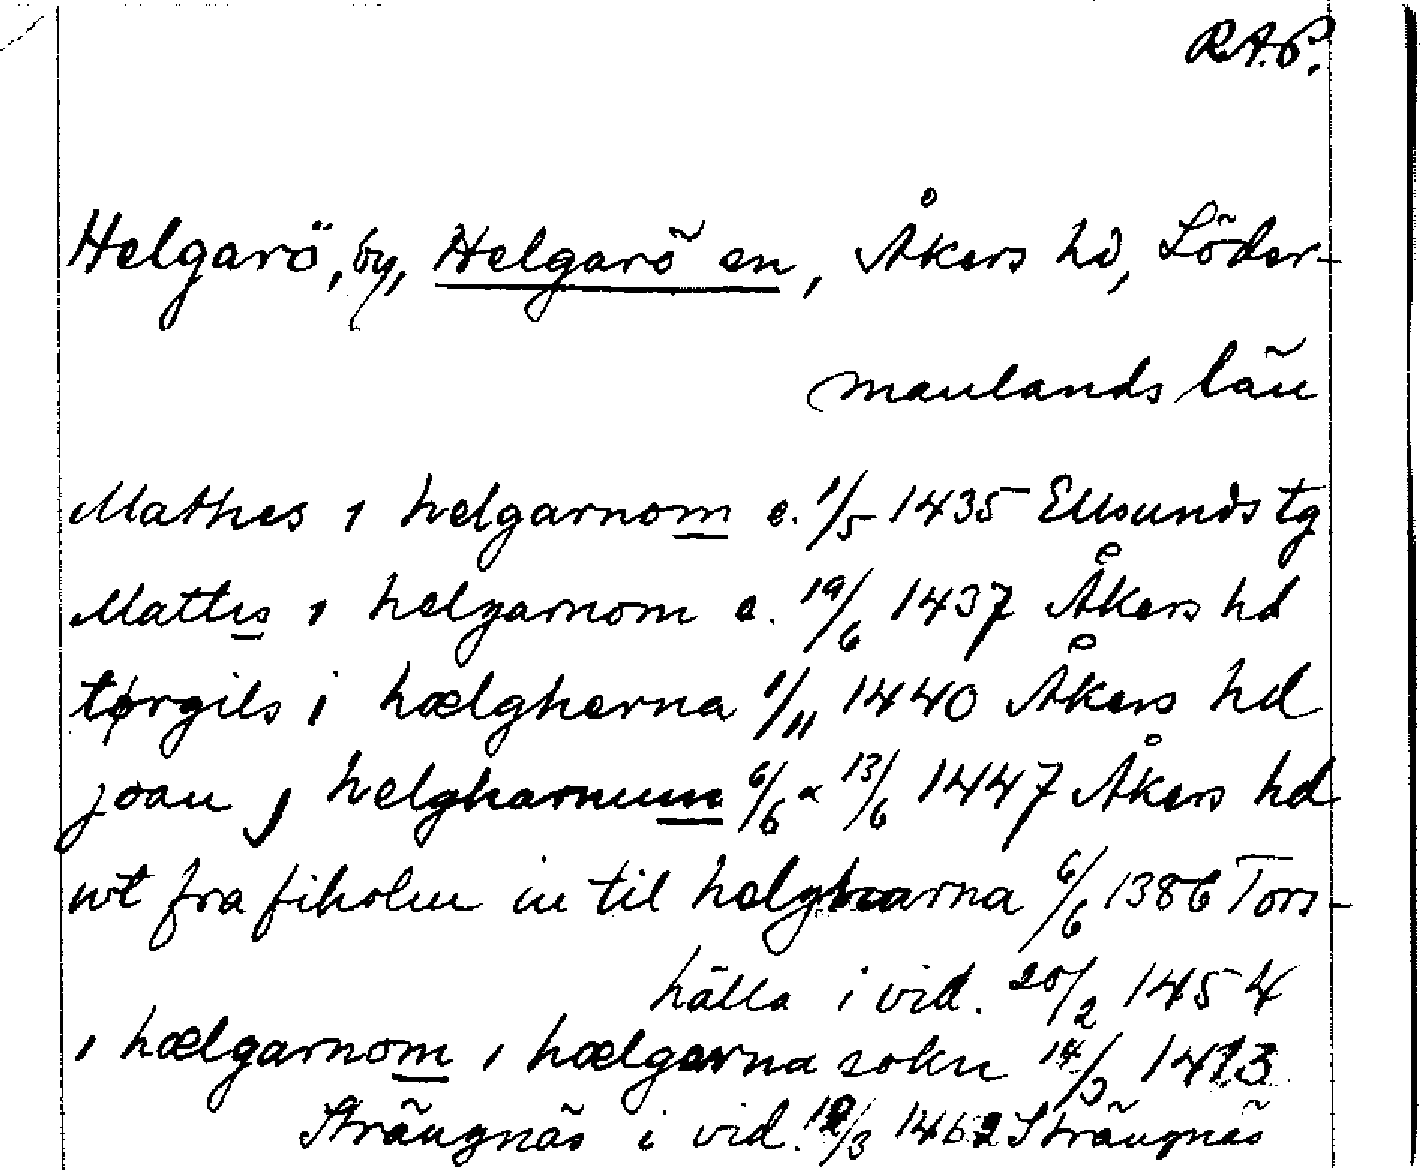 R.A.P.
Helgarö, by, Helgarö sn, Åkers hd, Söder-
manlands län
Mathes i helgarnom e. 1/5 1435 Ellsunds tg
Mattis i helgarnom e. 19/6 1437 Åkers hd
tørgils i hælgherna 1/11 1440 Åkers hd
joan j helgharnum 6/6 a 13/6 1447 Åkers hd
wt fra fiholm in til helgharna 6/6 1386 Tors-
hälla i vid. 20/2 1454
i hælgarnom i hælgarna sokn 1413
Strängnäs i vid. 1462 Strängnäs